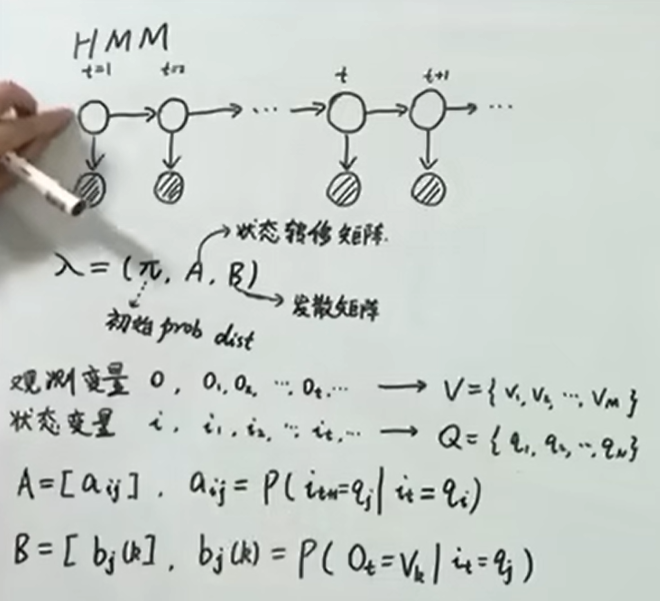 HMM
t=1 t=2 t t+1
... ...
状态转移矩阵.
λ=(π, A, B)
发散矩阵
初始prob dist
观测变量 o, o₁, o₂, ..., oₜ, ... → V={v₁, v₂, ..., v_M}
状态变量 i, i₁, i₂, ..., iₜ, ... → Q={q₁, q₂, ..., q_N}
A=[a_ij], a_ij=P(i_{t+1}=q_j|i_t=q_i)
B=[b_j(k)], b_j(k)=P(o_t=v_k|i_t=q_j)